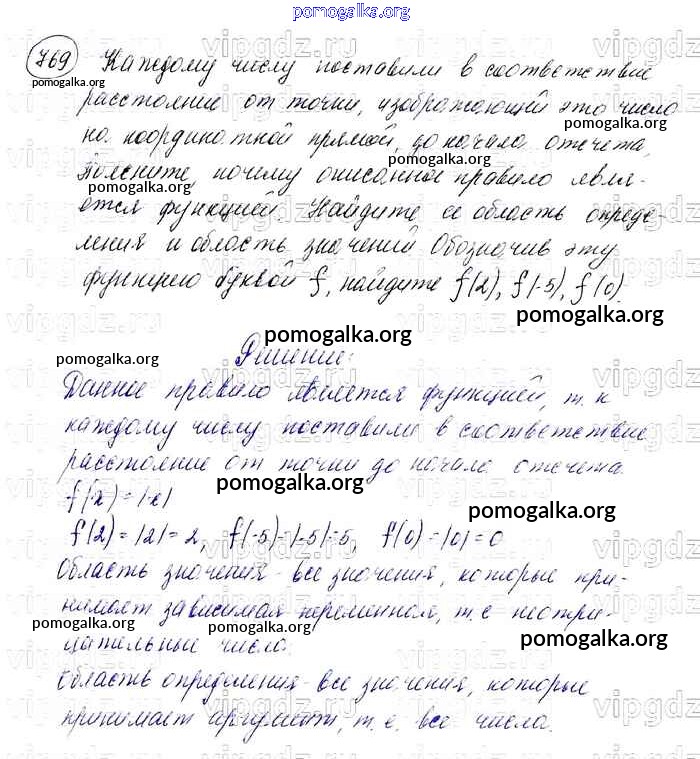 pomogalka.org
769 Каждому числу поставили в соответствие
pomogalka.org
расстояние от точки, изображающей это число
pomogalka.org
на координатной прямой, до начала отсчета,
pomogalka.org
Поясните, почему описанное правило явля-
pomogalka.org
ется функцией. Найдите ее область опреде-
ления и область значений Обозначив эту
функцию буквой f, найдите f(2), f(-5), f(0).
pomogalka.org
Решение:
pomogalka.org
Данное правило является функцией, т. к
каждому числу поставили в соответствие
расстояние от точки до начала отсчета
pomogalka.org
f(x) = |x|
pomogalka.org
f(2) = |2| = 2, f(-5)=|-5|=5, f(0)=|0|=0
область значения - все значения, которые при-
нимает зависимая переменная, т. е неотри-
pomogalka.org pomogalka.org
цательные числа.
pomogalka.org
область определения - все значения, которые
принимает аргумент, т. е. все числа.
vipgdz.ru